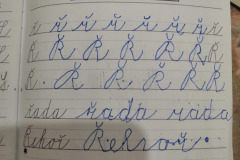 ř ř ř ř ř ř ř ř
Ř Ř Ř Ř Ř Ř Ř
Ř . Ř Ř Ř Ř Ř Ř
řada řada řada
Řehoř Řehoř .